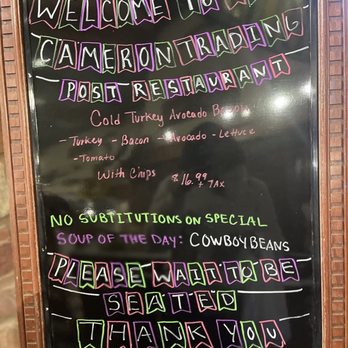 WELCOME TO
CAMERON TRADING
POST RESTAURANT
Cold Turkey Avocado Bacon
- Turkey - Bacon - Avocado - Lettuck
- Tomato
With Chips $16.99 + TAX
NO SUBTITUTIONS ON SPECIAL
SOUP OF THE DAY: COWBOY BEANS
PLEASE WAIT TO BE
SEATED
THANK YOU